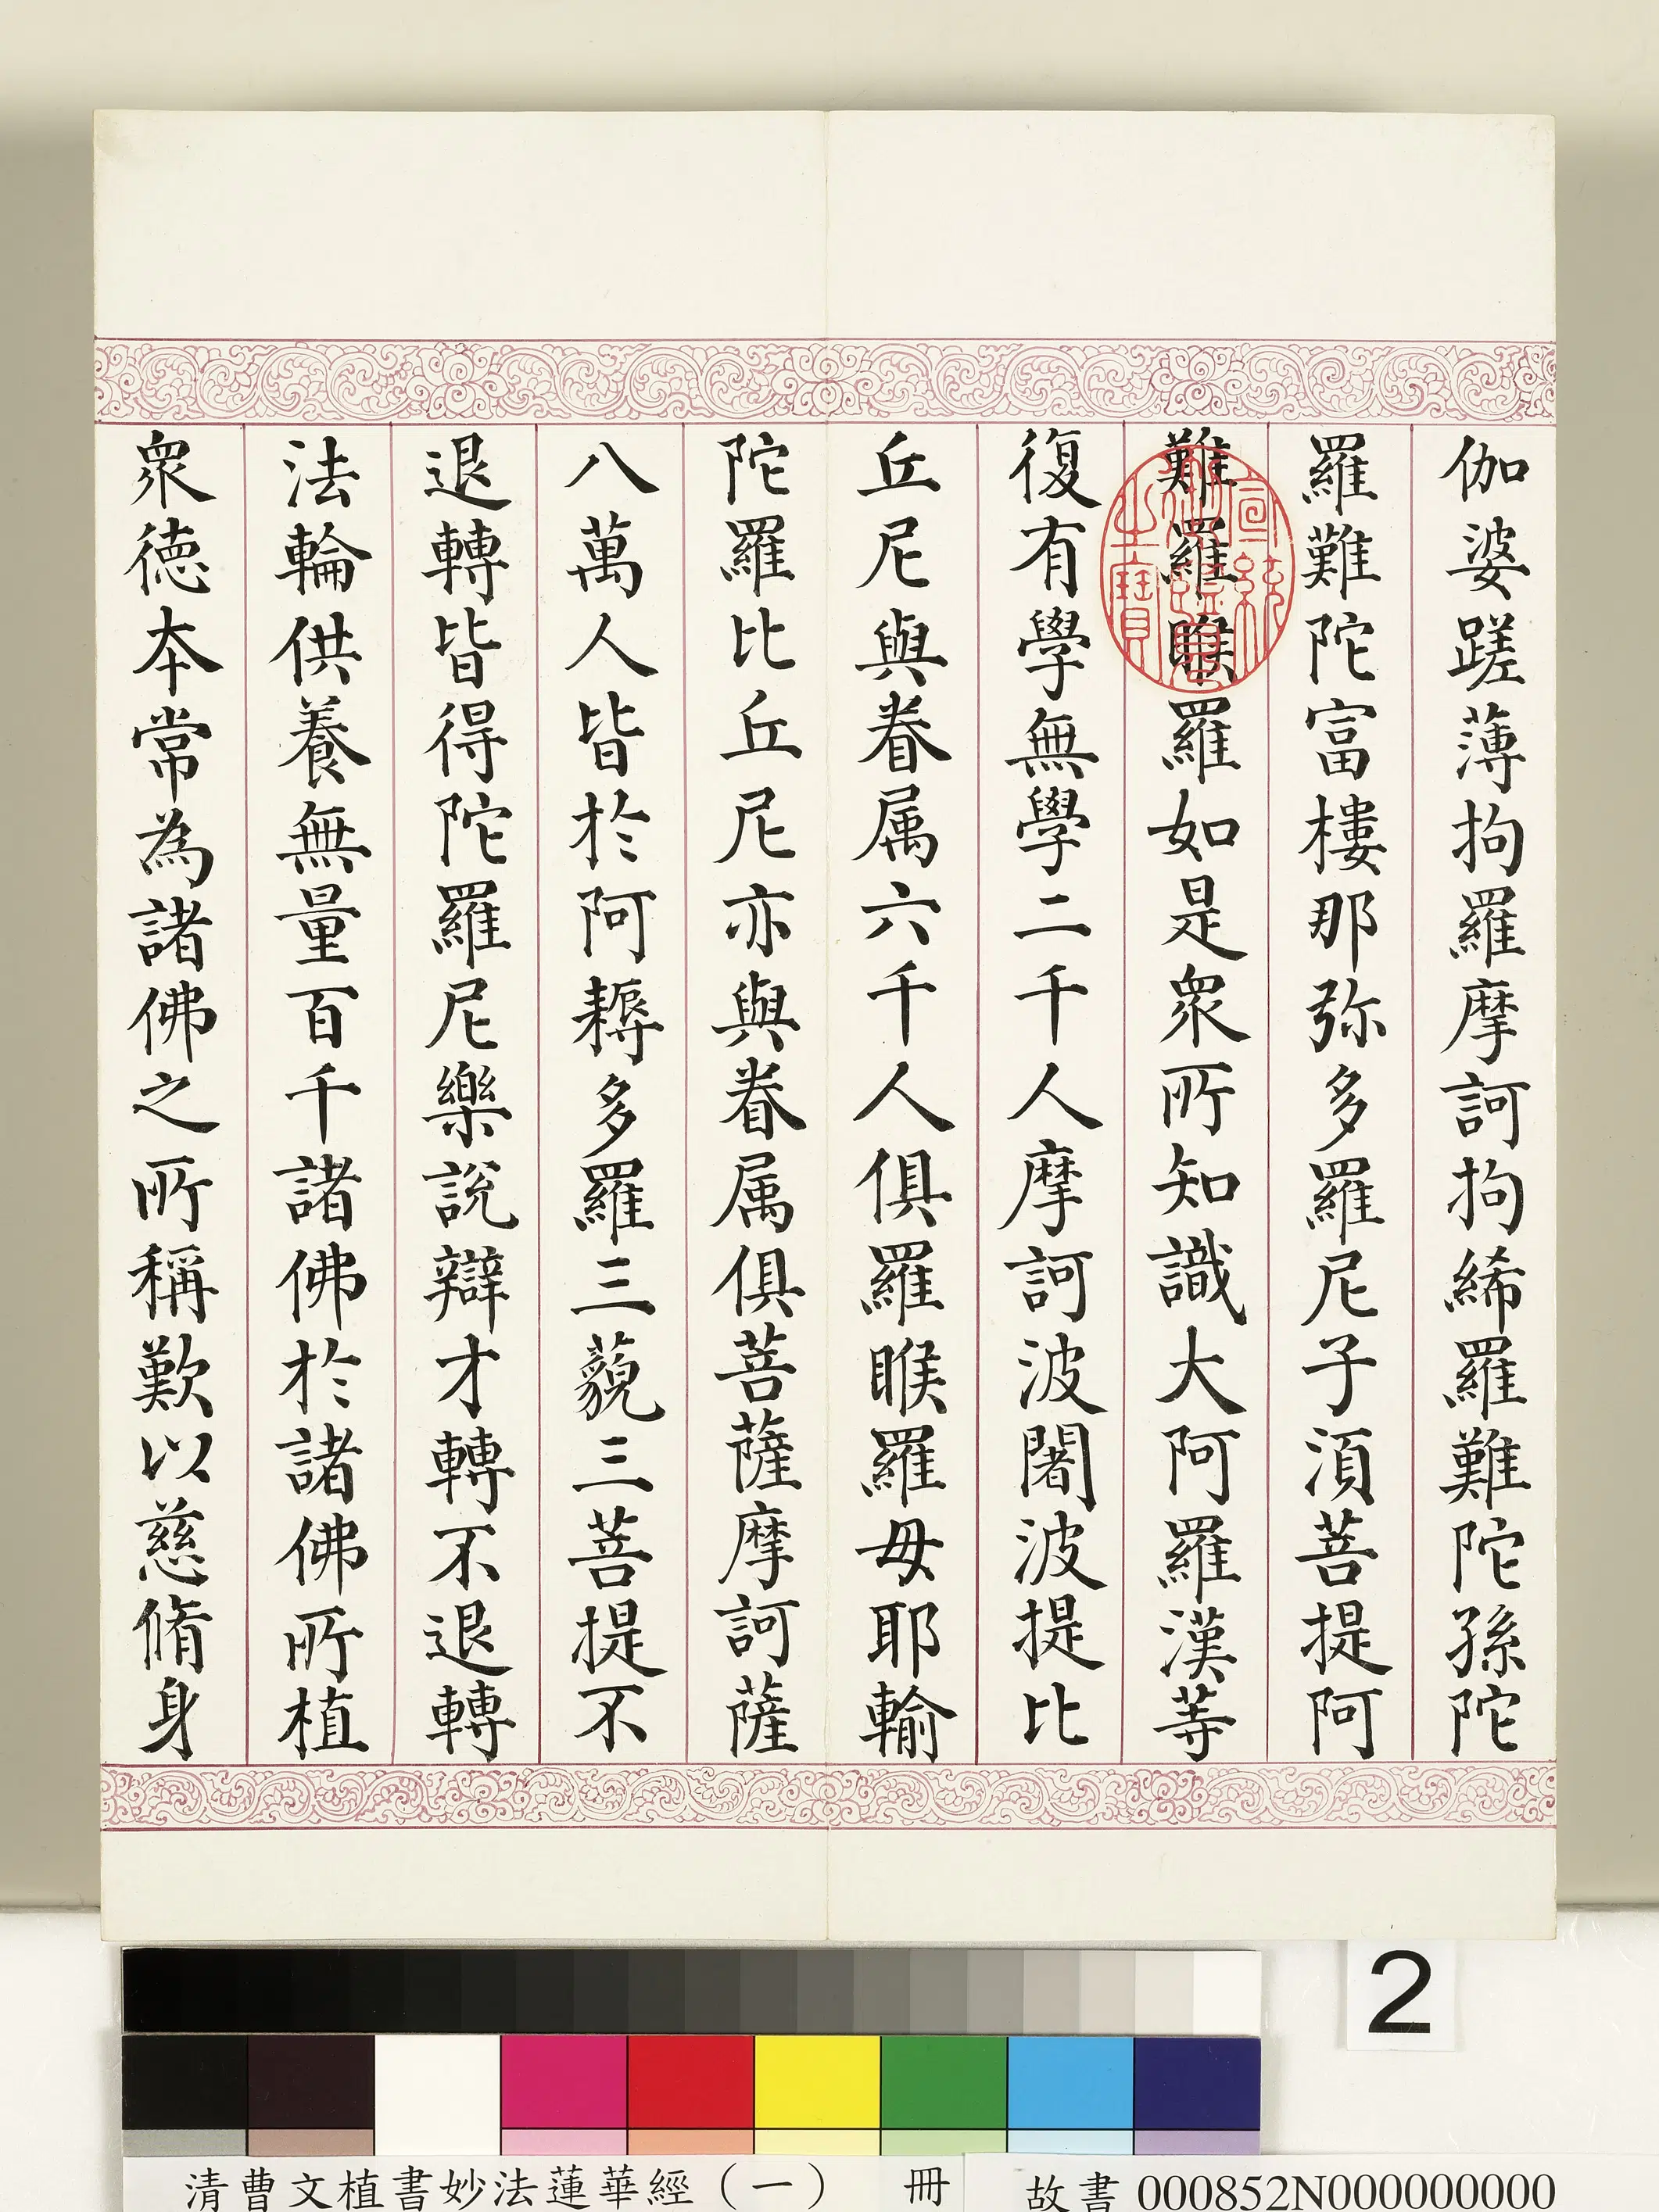 伽婆蹉薄拘羅摩訶拘絺羅難陀孫陀
羅難陀富樓那弥多羅尼子湏菩提阿
難羅睺羅如是衆所知識大阿羅漢等
復有學無學二千人摩訶波闍波提比
丘尼與眷属六千人俱羅睺羅母耶輸
陀羅比丘尼亦與眷属俱菩薩摩訶薩
八萬人皆於阿耨多羅三藐三菩提不
退轉皆得陀羅尼樂說辯才轉不退轉
法輪供養無量百千諸佛於諸佛所植
衆德本常為諸佛之所稱歎以慈脩身
宣統御覽之寶
2
清曹文植書妙法蓮華經（一） 冊
故書000852N000000000